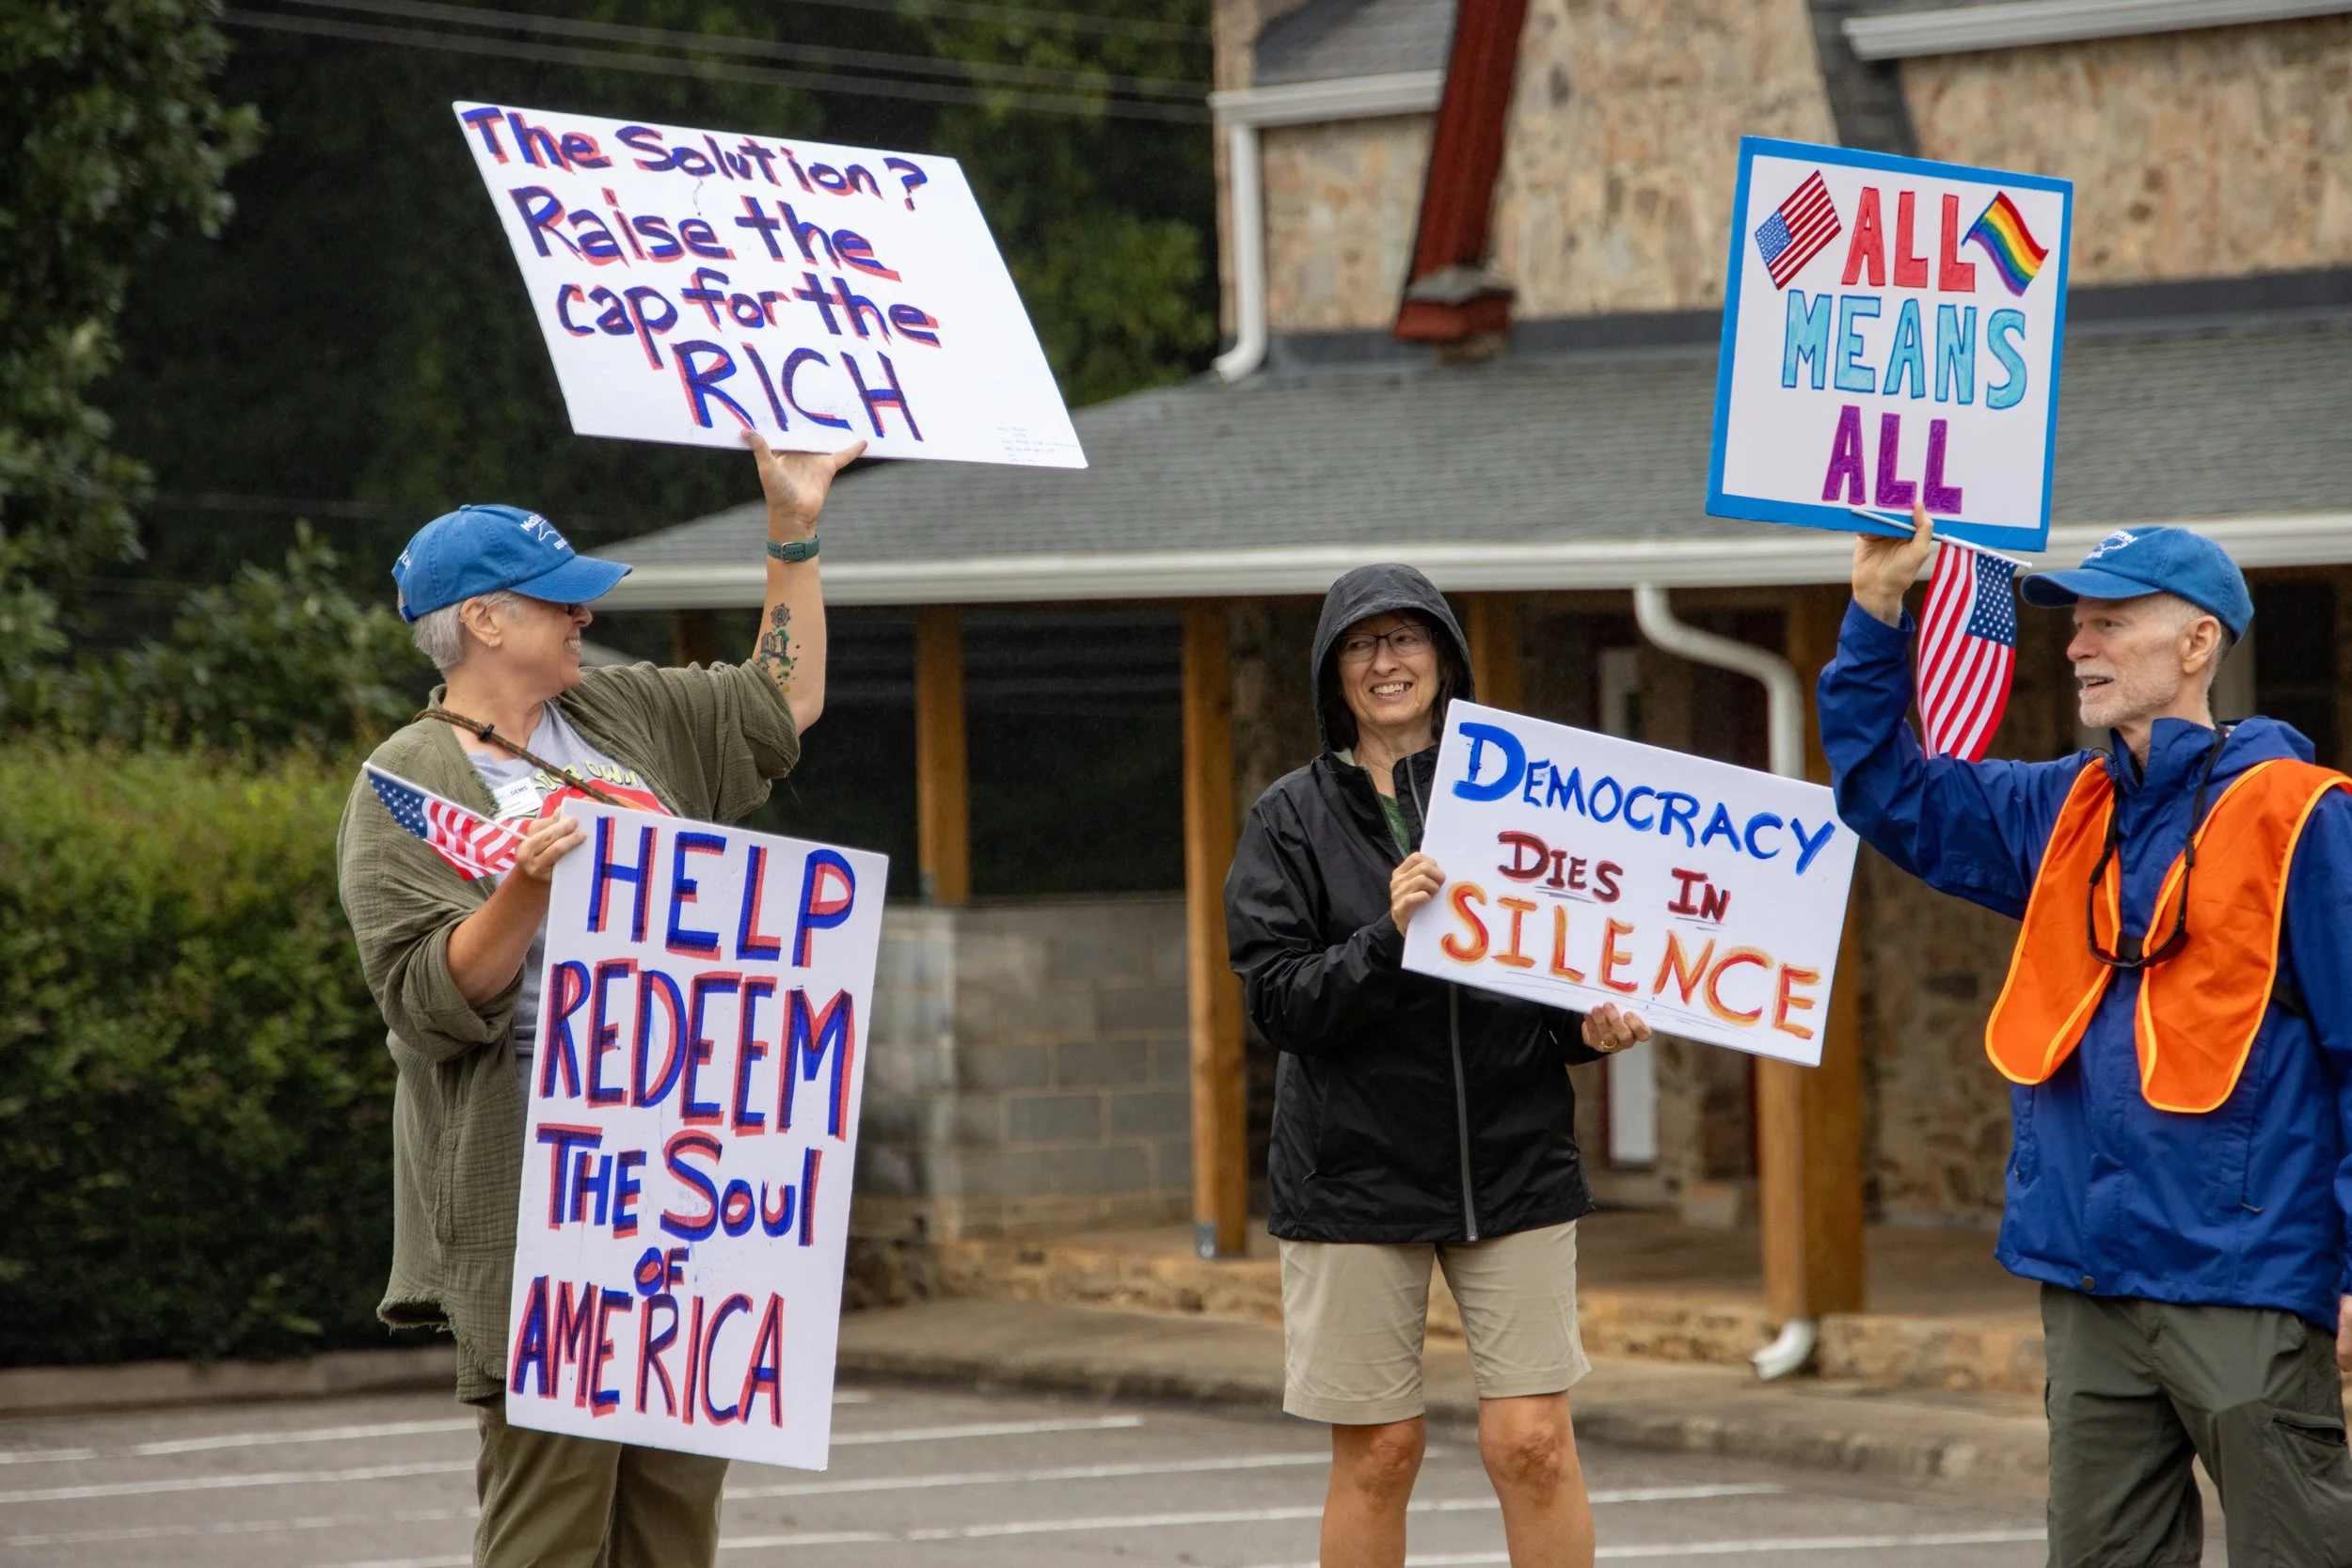 The Solution?
Raise the
cap for the
RICH
HELP
REDEEM
THE SOUl
OF
AMERICA
DEMOCRACY
DIES IN
SILENCE
ALL
MEANS
ALL
DEMS